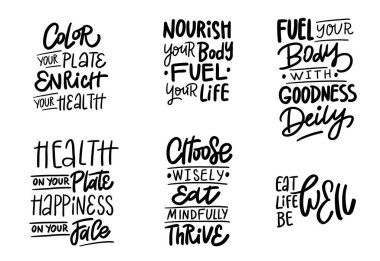 COLOR
YOUR PLATE
ENRICH
YOUR HEALTH
NOURISH
your BODY
FUEL
your LIFE
FUEL YOUR
BODY
WITH
GOODNESS
Deily
HEALTH
ON YOUR Plate
HAPPINESS
ON YOUR Face
CHOOSE
WISELY
Eat
MINDFULLY
THRIVE
EAT
LIFE
BE
WELL